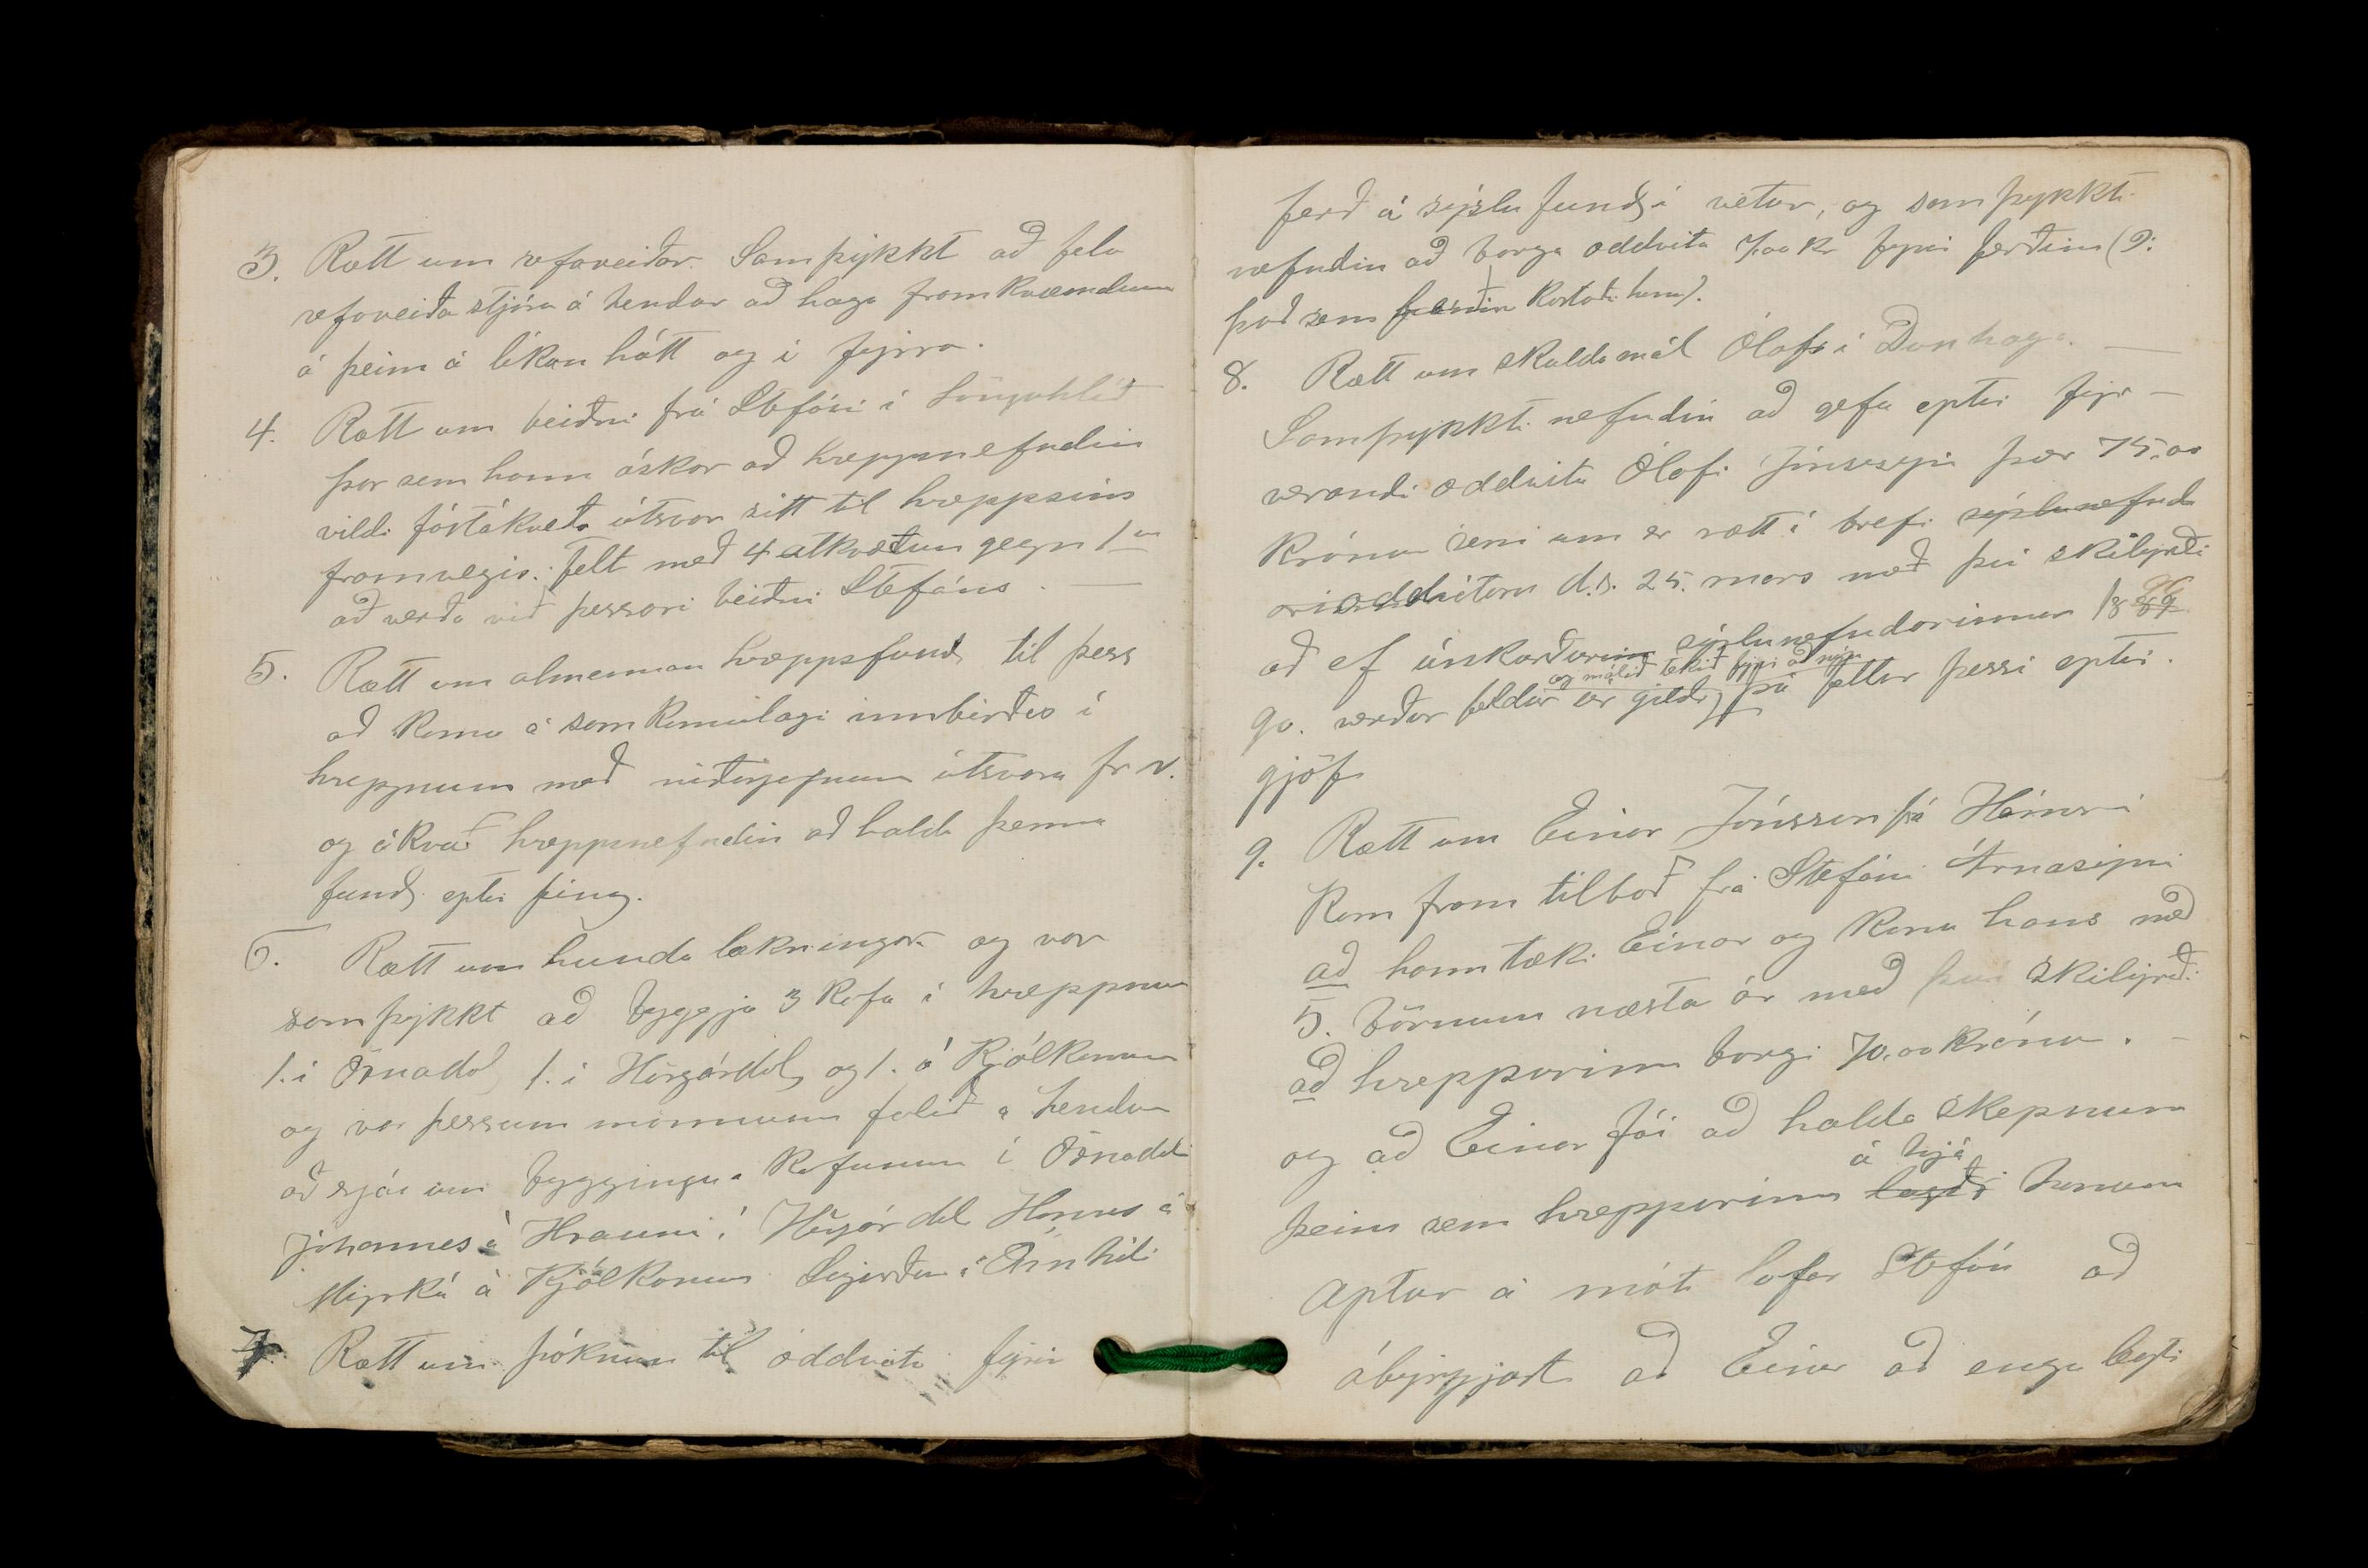 3. Rætt um refaveiðar. Samþykkt að fela
refaveiða stjóra á hendur að haga framkvæmdum
á þeim á líkan hátt og í fyrra.
4. Rætt um beiðni frá Stefáni í Lönguhlíð
þar sem hann óskar að hreppsnefndin
vildi fástákveða útsvar sitt til hreppsins
framvegis. Felt með 4 atkvæðum gegn 1
að verða við þessari beiðni Stefáns. —
5. Rætt um almennan hreppsfund til þess
að koma á samkomulagi innbirðes í
hreppnum með niðurjöfnun útsvara fr v.
og ákvað hreppsnefndin að halda þenna
fund eptir þing.
6. Rætt um hunda lækningar og var
samþykkt að byggja 3 kofa í hreppnum
1. í Öxnadal 1. í Hörgárdal og 1. á Kjálkanum
og var þessum mönnum falið á hendur
að sjá um byggingu á kofunum í Öxnadal
Jóhannes á Hrauni í Hörgárdal Hannes á
Myrká á Kjálkanum Sigurður á Öxnhóli
7. Rætt um þóknun til oddvita fyrir
ferð á sýslufund í vetur, og samþykkti
nefndin að borga oddvita 7,00 kr fyrir ferðina (ɔ:
það sem ferðin kostaði hann).
8. Rætt um skuldamál Ólafs í Dunhaga. —
Samþykkti nefndin að gefa eptir fyr-
verandi oddvita Ólafi Jónssyni þær 75,00
krónur sem um er rætt í brefi sýslunefnda
oddvitans d.s. 25. mars með því skilyrði
að ef úrskurðurinn sýslunefndarinnar 1889 96
og málið tekið fyrir að nýju
go. verður feldur úr gildi, þá fellur þessi eptir.
gjöf.
9. Rætt um Einar Jónsson frá Hámri
Kom fram tilboð frá Stefáni Árnasyni
að hann tæki Einar og konu hans með
5. börnum næsta ár með því skilyrði
að hreppurinn borgi 70,00 krónur. —
og að Einar fái að halda skepnum
á hjá
þeim sem hreppurinn lagði honum
Aptur á móti lofar Stefán að
ábyrgjast að Einar að engu leyti